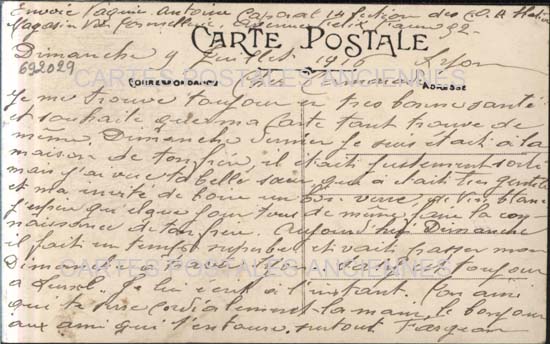 Envoie Paquier Antoine Caporal 14 Section des C.O.A Station
Magasin Avenue Félix Faure 92
CARTE POSTALE
Dimanche 9 Juillet 1916 Lyon
692029
CORRESPONDANCE ADRESSE
Cher
Je me trouve toujour en tres bonne santé
et souhaite que ma Carte tant trouve de
même, Dimanche dernier je suis était à la
maison de ton frère, il était justement sorti
mais j'ai vue ta belle sœur qui à était très gentille
et ma invité de boire un bon verre, de vin blanc
j'espère qui elque jour tous de même faire la con-
naissance de ton frère. Aujourd'hui Dimanche
il fait un temps superbe et vait passer mon
Dimanche toujour
à Je lui écrit à l'instant. Ton ami
qui te serre cordialement la main, le bonjour
aux ami qui t'entoure, surtout
CARTES POSTALES ANCIENNES
CARTES POSTALES ANCIENNES